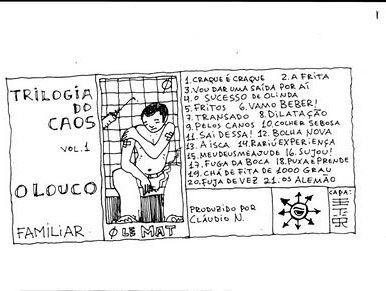 TRILOGIA
DO
CAOS
VOL.1
O LOUCO
FAMILIAR
Ø
Ø LE MAT
1.CRAQUE É CRAQUE 2.A FRITA
3.VOU DAR UMA SAÍDA POR AÍ
4.O SUCESSO DE OLINDA
5.FRITOS 6.VAMO BEBER!
7.TRANSADO 8.DILATAÇÃO
9.PELOS CANOS 10.COLHER SEBOSA
11.SAI DESSA! 12.BOLHA NOVA
13.A ISCA 14.RARIÚ EXPERIÊNÇA
15.MEUDEUSMEAJUDE 16.SUJOU!
17.FUGA DA BOCA 18.PUXA E PRENDE
19.CHÁ DE FITA DE 1000 GRAU
20.FUJA DE VEZ 21.OS ALEMÃO
PRODUZIDO POR
CLÁUDIO N.
CAPA: